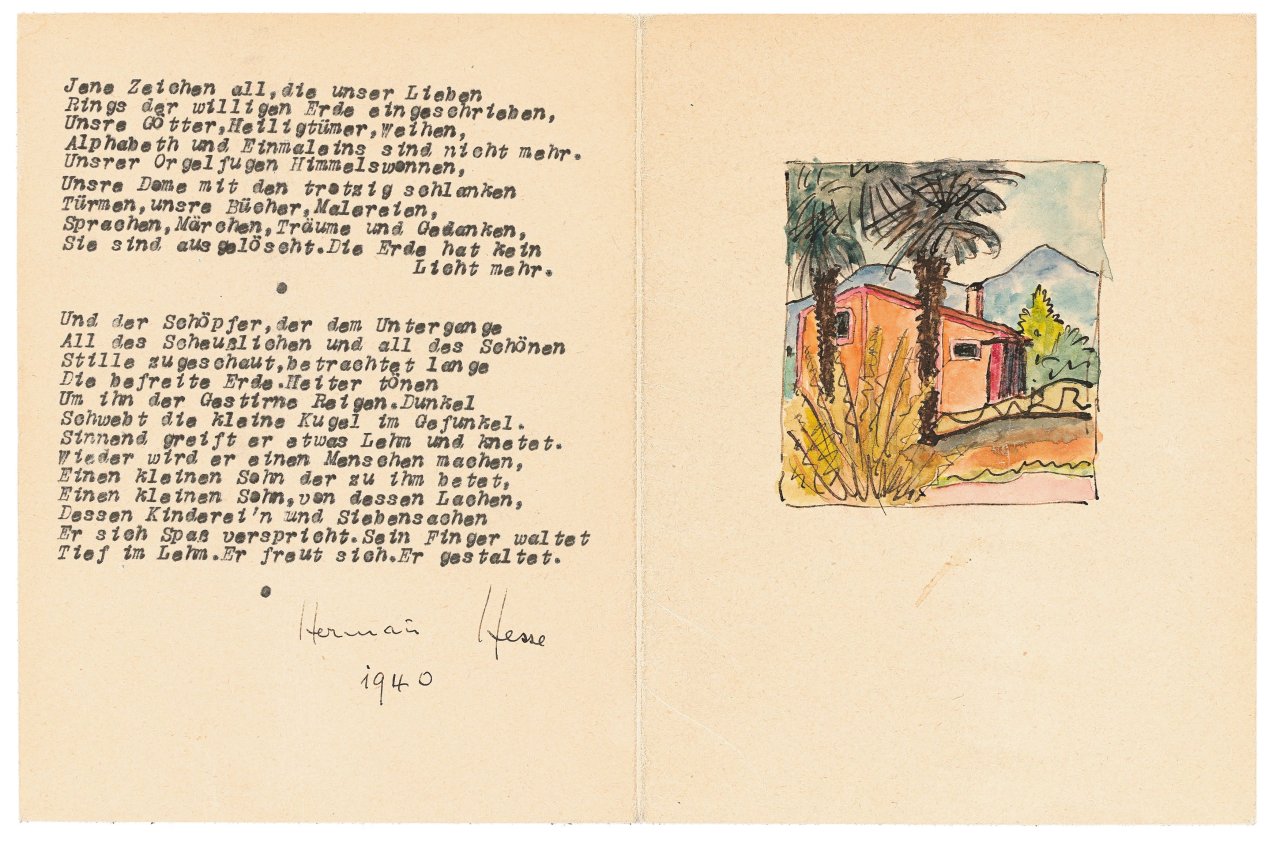 Jene Zeichen all,die unser Lieben
Rings der willigen Erde eingeschrieben,
Unsre Götter,Heiligtümer,Weihen,
Alphabeth und Einmaleins sind nicht mehr.
Unsrer Orgelfugen Himmelswonnen,
Unsre Dome mit den trotzig schlanken
Türmen,unsre Bücher,Malereien,
Sprachen,Märchen,Träume und Gedanken,
Sie sind ausgelöscht.Die Erde hat kein
Licht mehr.
Und der Schöpfer,der dem Untergange
All des Scheußlichen und all des Schönen
Stille zugeschaut,betrachtet lange
Die befreite Erde.Heiter tönen
Um ihn der Gestirne Reigen.Dunkel
Schwebt die kleine Kugel im Gefunkel.
Sinnend greift er etwas Lehm und knetet.
Wieder wird er einen Menschen machen,
Einen kleinen Sohn der zu ihm betet,
Einen kleinen Sohn,von dessen Lachen,
Dessen Kinderei'n und Siebensachen
Er sich Spaß verspricht.Sein Finger waltet
Tief im Lehm.Er freut sich.Er gestaltet.
Hermañ Hesse
1940